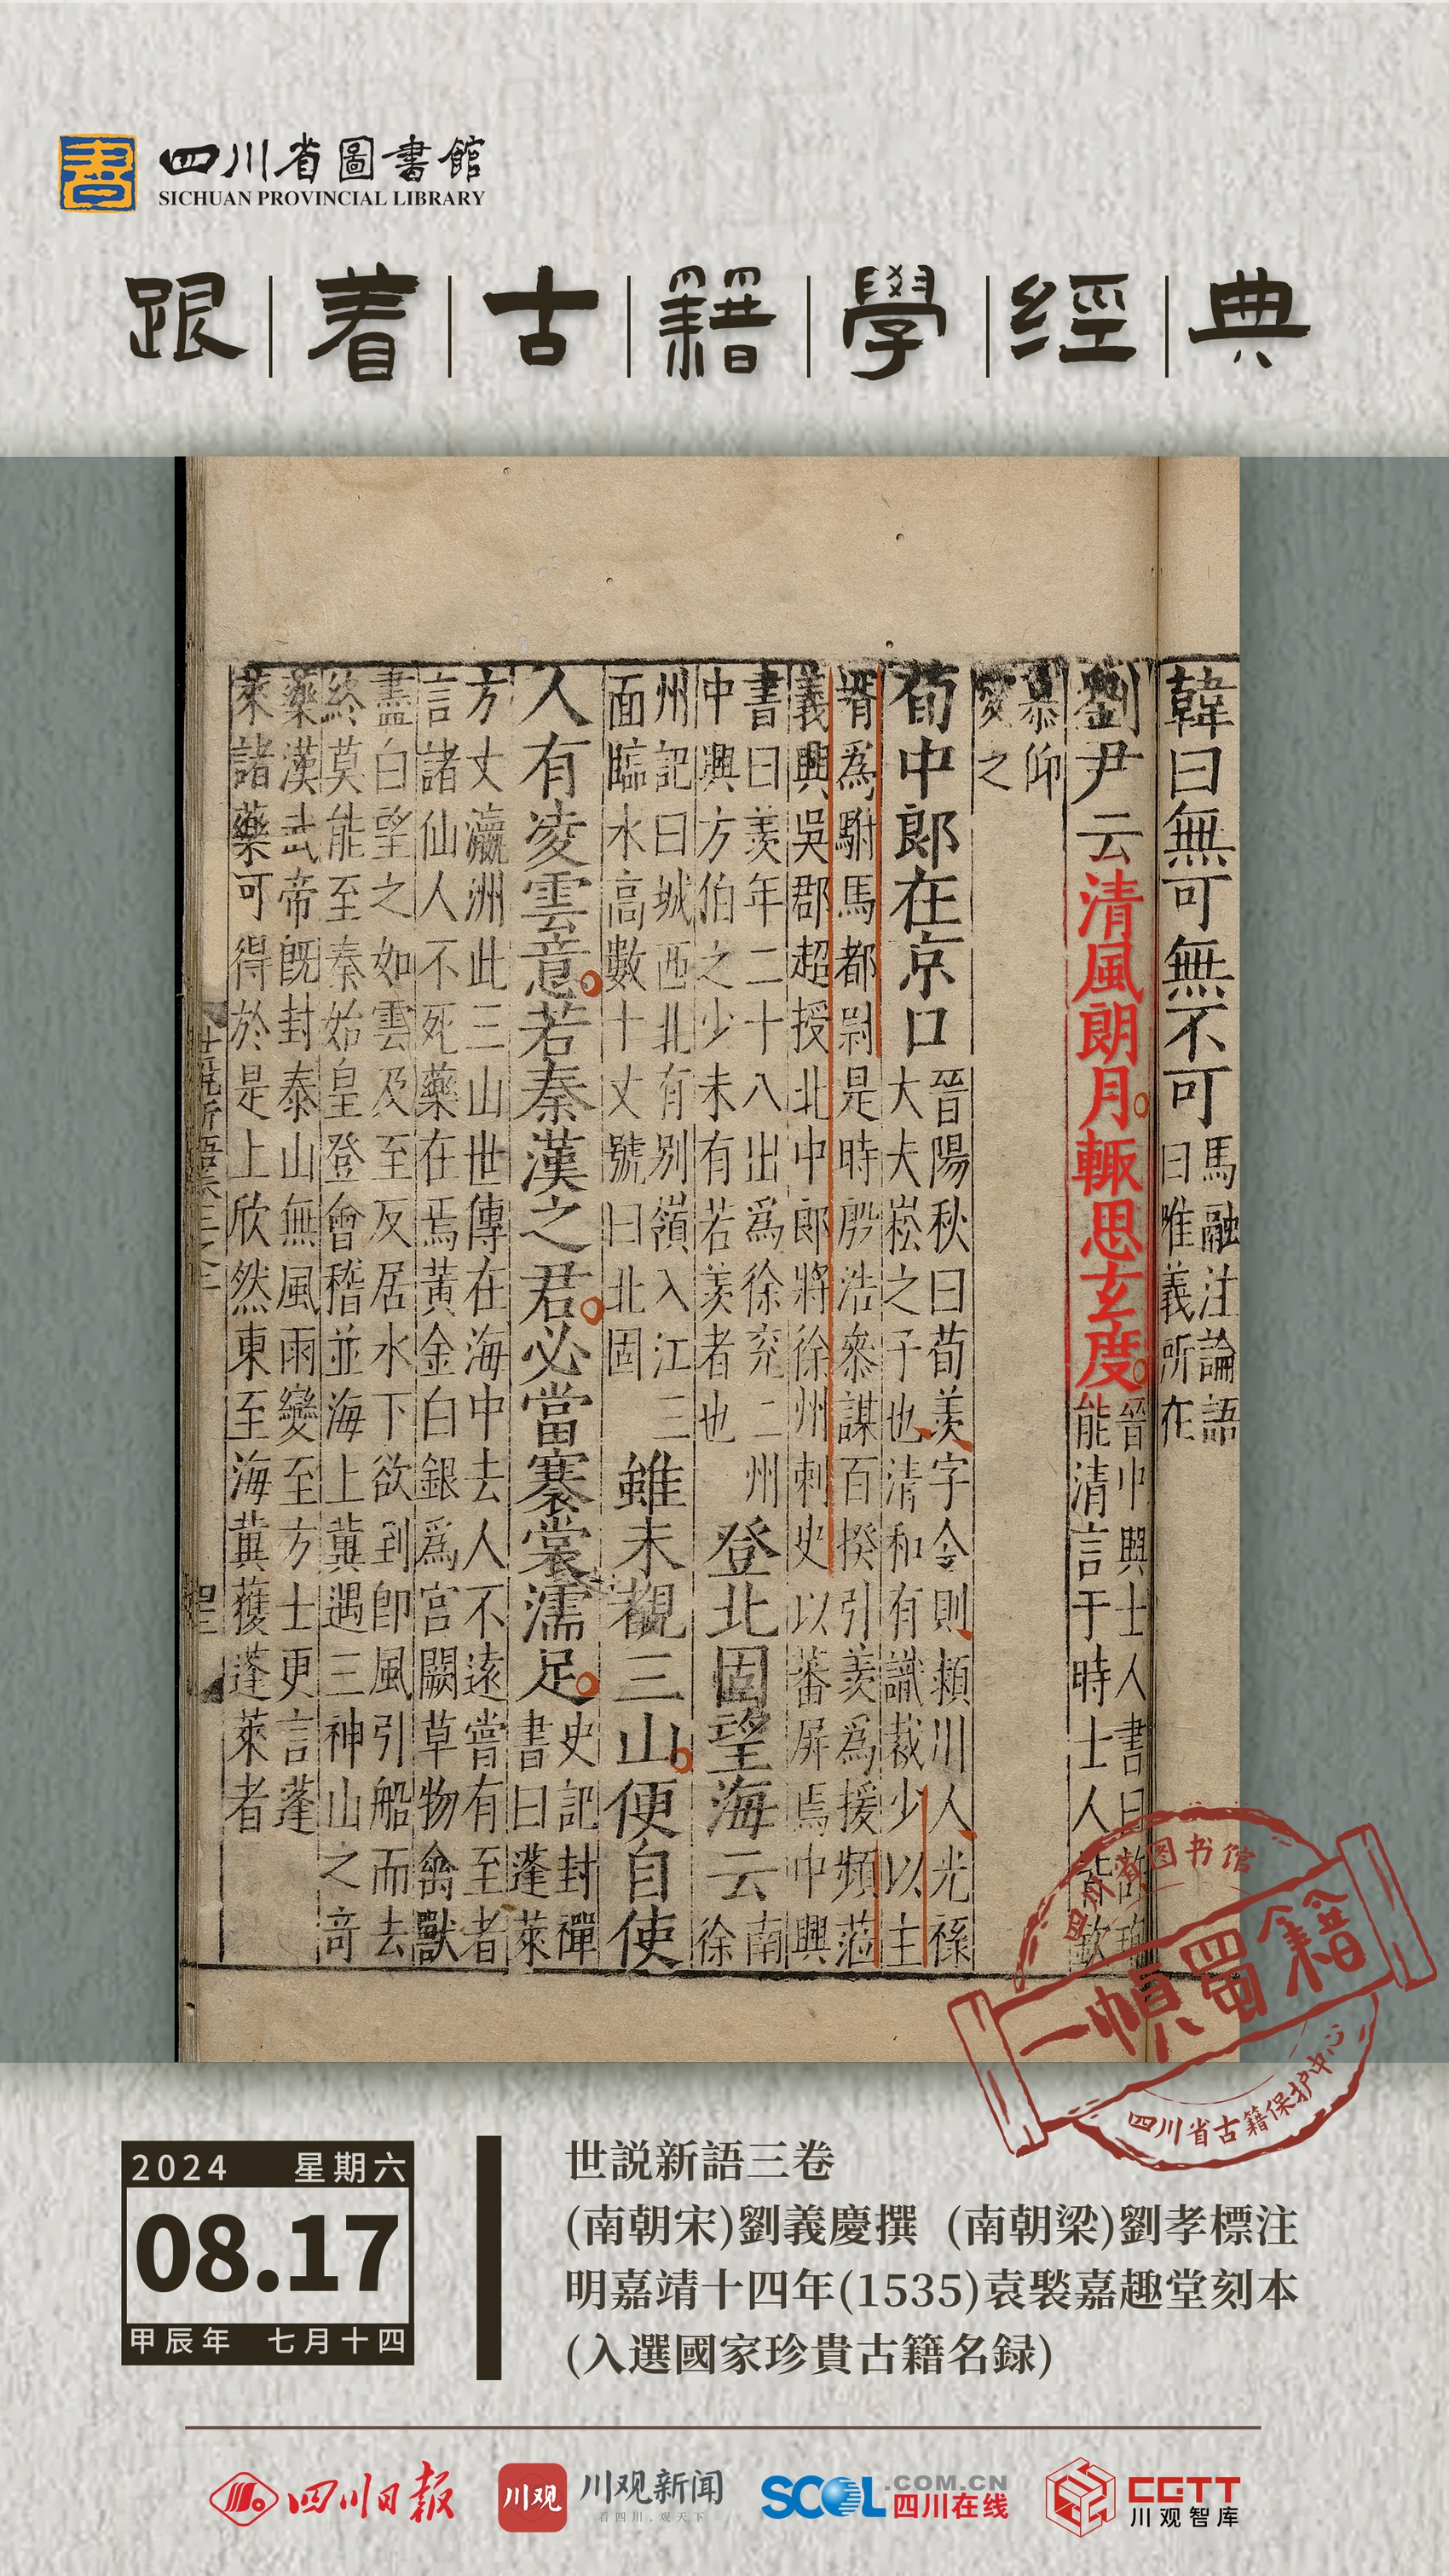 書
四川省圖書館
SICHUAN PROVINCIAL LIBRARY
跟着古籍學經典
韓曰無可無不可
馬融注論語
曰唯義所在
劉尹云清風朗月輒思玄度
晉中興士人書曰許詢
能清言于時士人皆欽
慕仰
愛之
荀中郎在京口
晉陽秋曰荀羨字令則潁川人光祿
大夫崧之子也清和有識裁少以主
壻爲駙馬都尉是時殷浩叅謀百揆引羨爲援頻蒞
義興吳郡超授北中郎將徐州刺史以蕃屏焉中興
書曰羨年二十八出爲徐兗二州
中興方伯之少未有若羨者也
登北固望海云
南
徐
州記曰城西北有別嶺入江三
面臨水高數十丈號曰北固
雖未覩三山便自使
人有凌雲意若秦漢之君必當褰裳濡足
史記封禪
書曰蓬萊
方丈瀛洲此三山世傳在海中去人不遠嘗有至者
言諸仙人不死藥在焉黃金白銀爲宮闕草物禽獸
盡白望之如雲及至反居水下欲到卽風引船而去
終莫能至秦始皇登會稽並海上冀遇三神山之奇
藥漢武帝旣封泰山無風雨變至方士更言蓬
萊諸藥可得於是上欣然東至海冀獲蓬萊者
四川省图书馆
一幀蜀籍
四川省古籍保护中心
2024 星期六
08.17
甲辰年 七月十四
世説新語三卷
(南朝宋)劉義慶撰 (南朝梁)劉孝標注
明嘉靖十四年(1535)袁褧嘉趣堂刻本
(入選國家珍貴古籍名録)
四川日报
川观
川观新闻
看四川,观天下
SCOL.COM.CN
四川在线
CGTT
川观智库